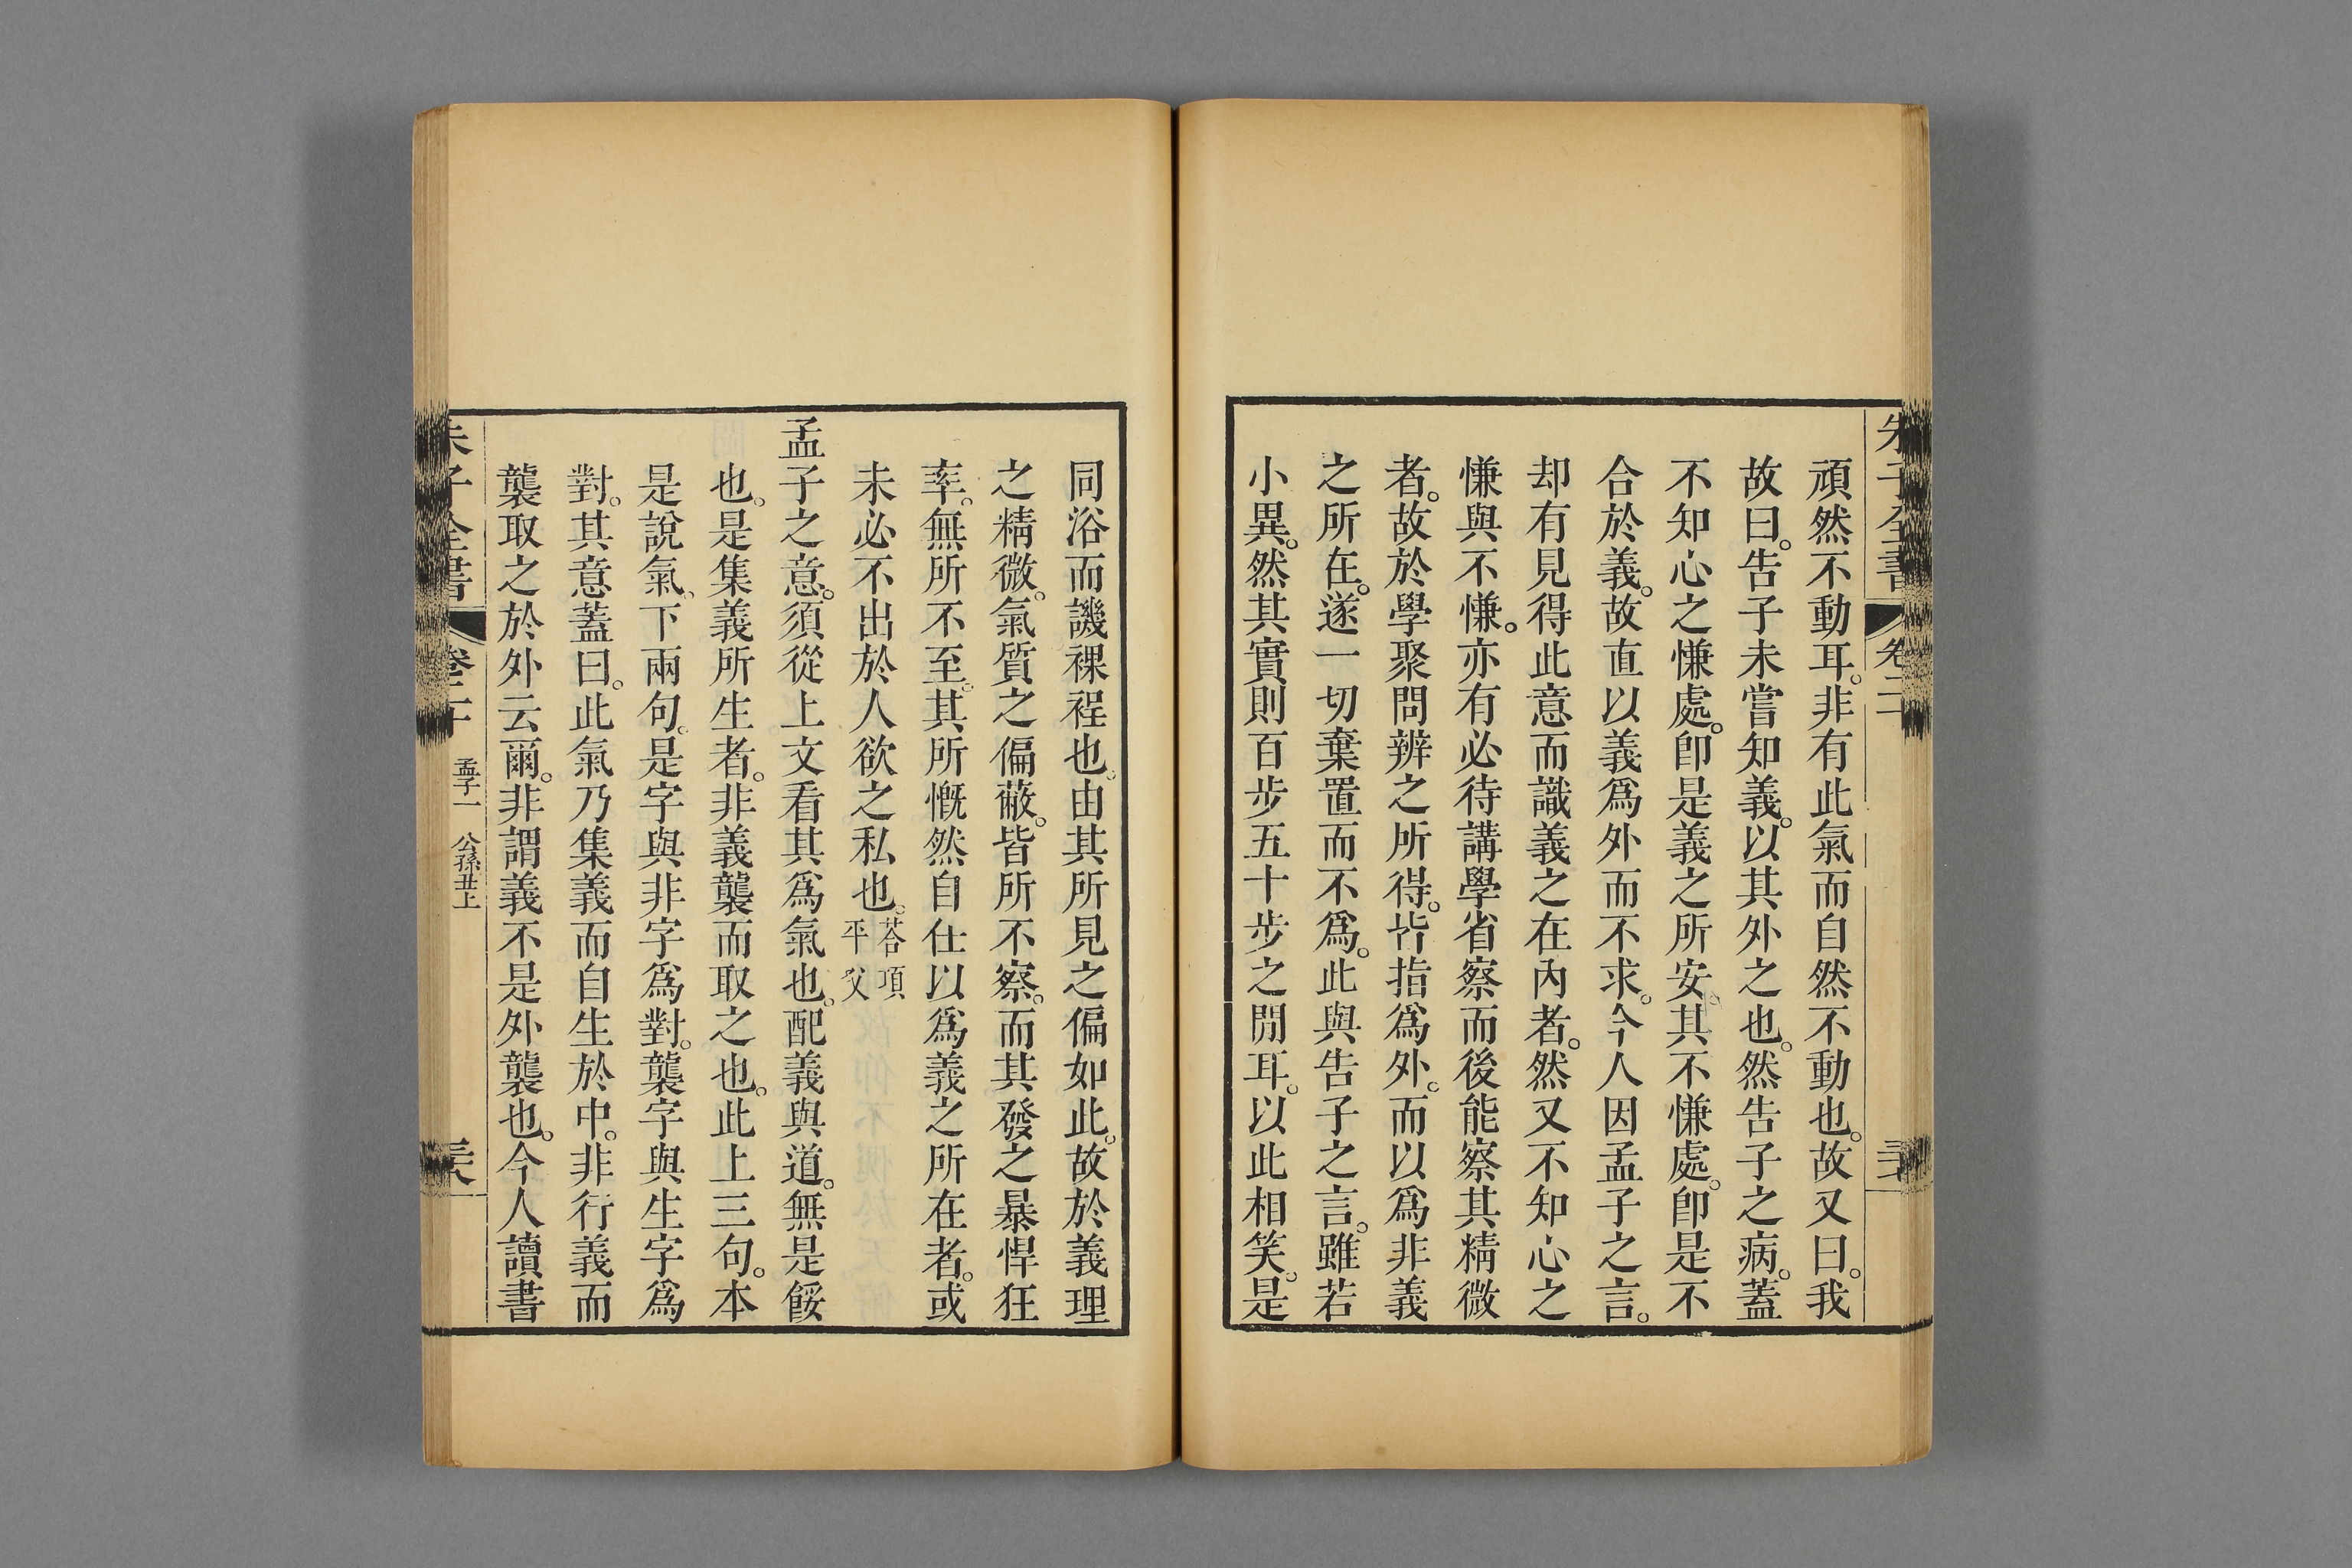 朱子全書 卷二十
頑然不動耳。非有此氣而自然不動也。故又曰。我
故曰。告子未嘗知義。以其外之也。然告子之病。蓋
不知心之慊處。卽是義之所安。其不慊處。卽是不
合於義。故直以義爲外而不求。今人因孟子之言。
却有見得此意而識義之在內者。然又不知心之
慊與不慊。亦有必待講學省察而後能察其精微
者。故於學聚問辨之所得。皆指爲外。而以爲非義
之所在。遂一切棄置而不爲。此與告子之言。雖若
小異。然其實則百步五十步之閒耳。以此相笑。是
同浴而譏裸裎也。由其所見之偏如此。故於義理
之精微。氣質之偏蔽。皆所不察。而其發之暴悍狂
率。無所不至。其所慨然自任以爲義之所在者。或
未必不出於人欲之私也。荅項平父
孟子之意。須從上文看其爲氣也。配義與道。無是餒
也。是集義所生者。非義襲而取之也。此上三句。本
是說氣。下兩句。是字與非字爲對。襲字與生字爲
對。其意蓋曰。此氣乃集義而自生於中。非行義而
襲取之於外云爾。非謂義不是外襲也。今人讀書
朱子全書 卷二十 孟子一 公孫丑上